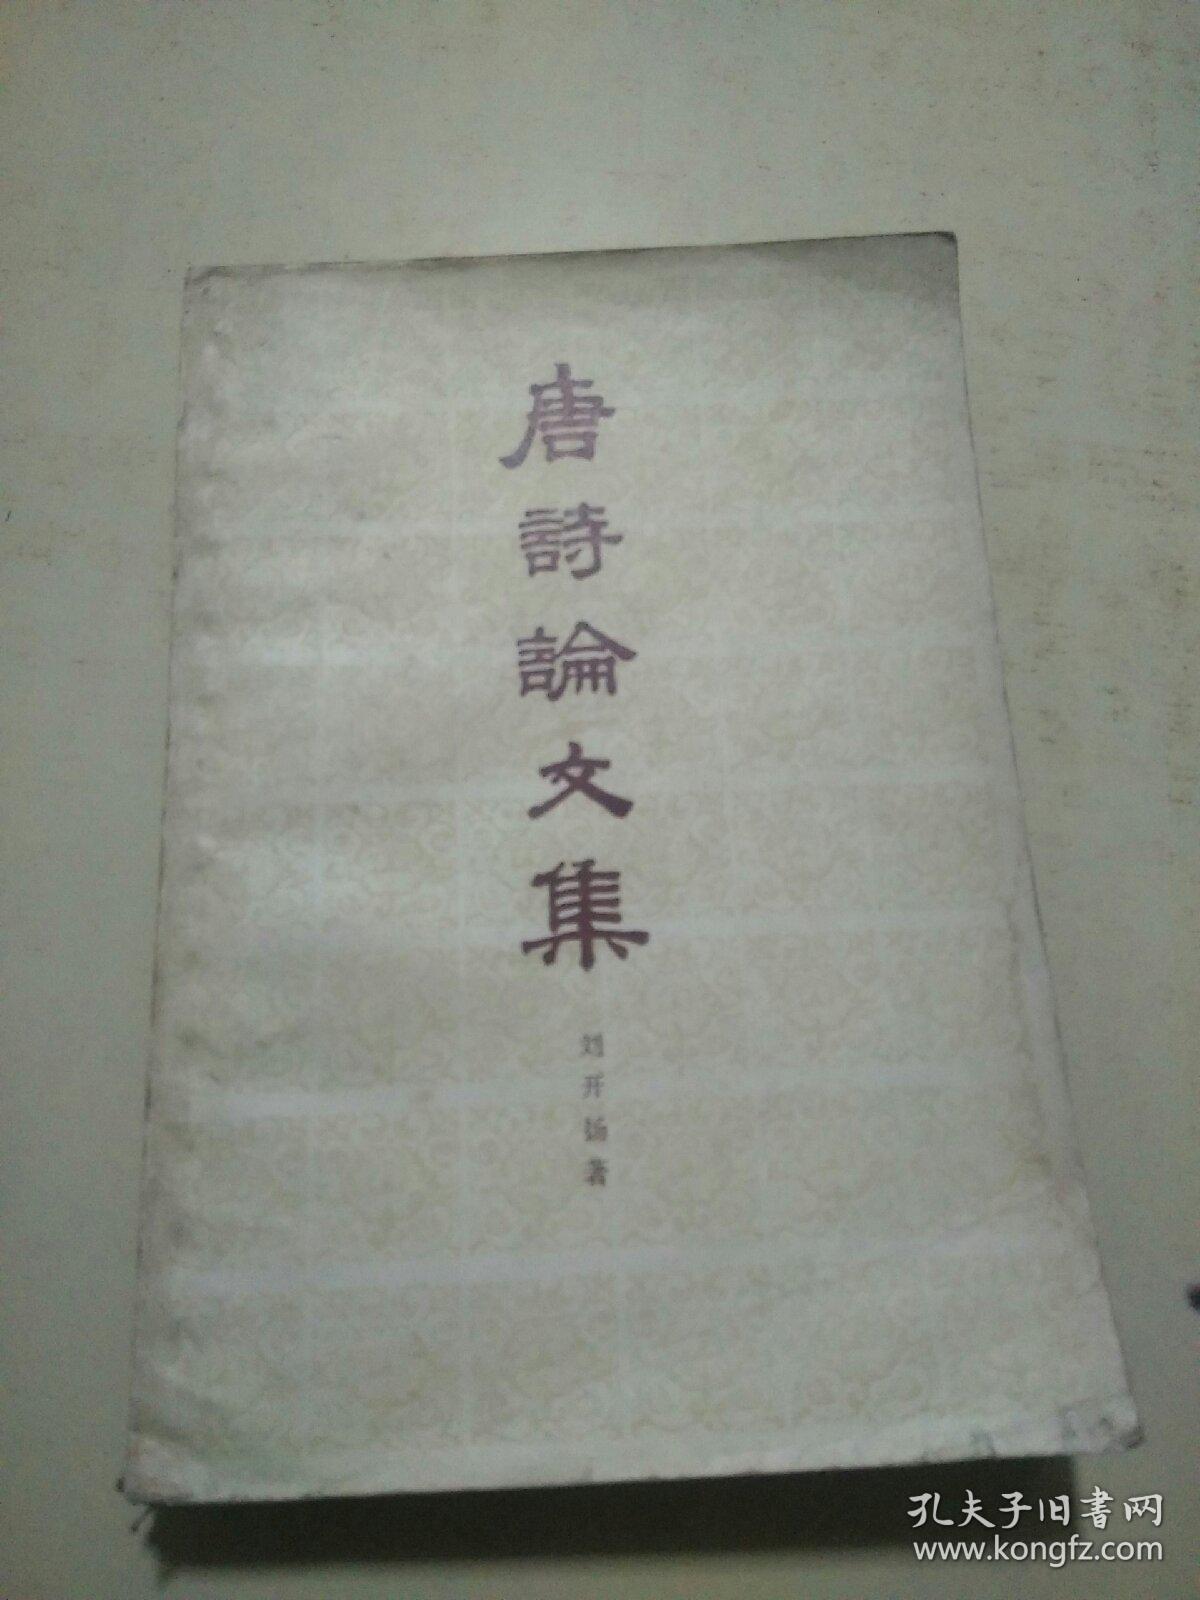 唐詩論文集
刘开扬著
孔夫子旧書网
www.kongfz.com